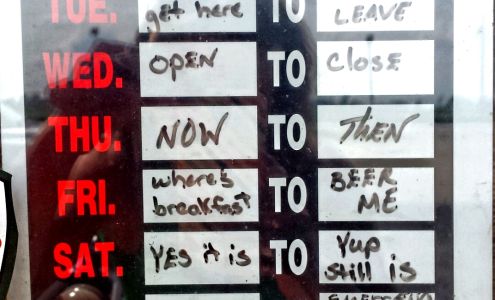 TUE. get here TO LEAVE
WED. OPEN TO Close
THU. NOW TO THEN
FRI. where's breakfast TO BEER ME
SAT. YES it is TO Yup still is